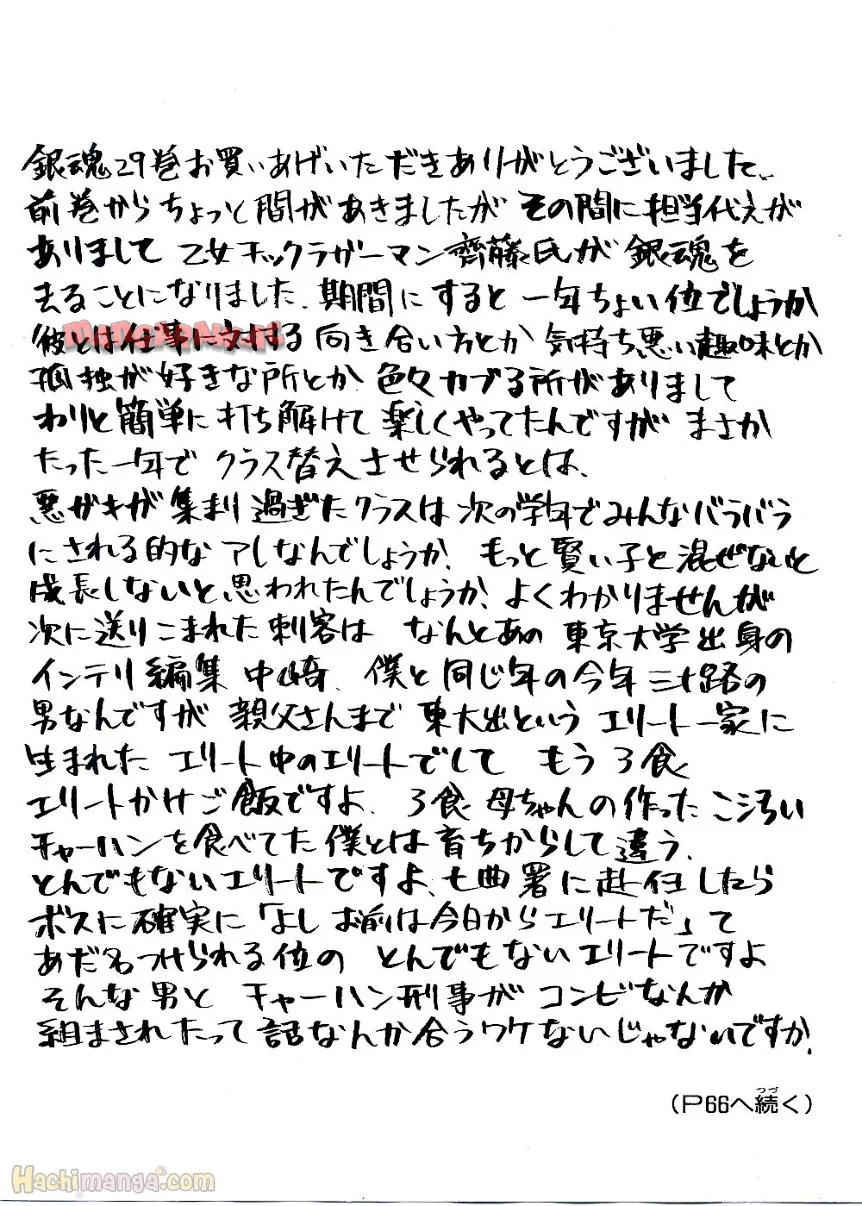 銀魂29巻お買いあげいただきありがとうございました。
前巻からちょっと間があきましたが その間に担当代えが
ありまして 乙女チックラガーマン齊藤氏が銀魂を
去ることになりました。期間にすると一年ちょい位でしょうか
彼とは仕事に対する向き合い方とか 気持ち悪い趣味とか
孤独が好きな所とか 色々カブる所がありまして
わりと簡単に打ち解けて楽しくやってたんですが まさか
たった一年でクラス替えさせられるとは、
悪ガキが集まり過ぎたクラスは次の学年でみんなバラバラ
にされる的なアレなんでしょうか。もっと賢い子と混ぜないと
成長しないと思われたんでしょうか。よくわかりませんが
次に送りこまれた刺客は なんとあの 東京大学出身の
インテリ編集 中崎、僕と同じ年の今年三十路の
男なんですが 親父さんまで東大出というエリート一家に
生まれた エリート中のエリートでして もう3食
エリートかけご飯ですよ、3食母ちゃんの作ったこ汚い
チャーハンを食べてた僕とは育ちからして違う、
とんでもないエリートですよ、七曲署に赴任したら
ボスに確実に「よし お前は今日からエリートだ」て
あだ名つけられる位の とんでもないエリートですよ
そんな男と チャーハン刑事がコンビなんか
組まされたって話なんか合うワケないじゃないですか。
(P66へ続く)
つづ
Hachimanga.com